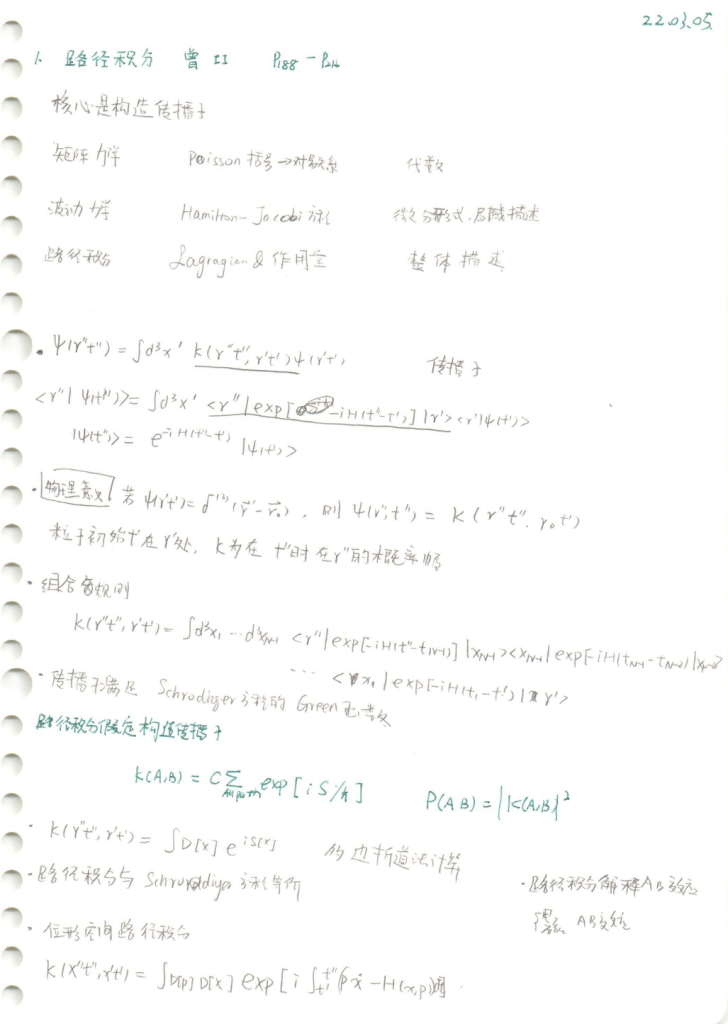 22.03.05.
1. 路径积分 曾 II P188 - P216
核心是构造传播子
矩阵力学 Poisson 括号→对易关系 代数
波动力学 Hamilton-Jacobi 方程 微分形式,局域描述
路径积分 Lagragian & 作用量 整体描述
• Ψ(r"t") = ∫d³x' K(r"t", r't')Ψ(r't') 传播子
<r"|Ψ(t")> = ∫d³x' <r"|exp[-iH(t"-t')]|r'><r'|Ψ(t')>
|Ψ(t")> = e^{-iH(t"-t')} |Ψ(t')>
• 物理意义 若 Ψ(r't') = δ⁽³⁾(r⃗'-r⃗₀), 则 Ψ(r",t") = K(r"t", r₀t')
粒子初始t'在r'处, K为在t"时在r"的概率幅
• 组合规则
K(r"t", r't') = ∫d³x₁ ⋯ d³x_{N-1} <r"|exp[-iH(t"-t_{N-1})]|x_{N-1}><x_{N-1}|exp[-iH(t_{N-1}-t_{N-2})]|x_{N-2}>
⋯ <x₁|exp[-iH(t₁-t')]|r'>
• 传播子满足 Schrodiger 方程的 Green 函数
路径积分假定构造传播子
K(A,B) = C∑_{All path} exp[iS/ħ] P(AB) = |K(A,B)|²
• K(r"t", r't') = ∫D[x] e^{iS[x]} 多边折道法计算
• 路径积分与 Schrorodiger 方程等价 • 路径积分解释AB效应
AB效应
• 位形空间路径积分
K(x"t", x't') = ∫D[p]D[x] exp[i∫_{t'}^{t"}(pẋ - H(x,p))]